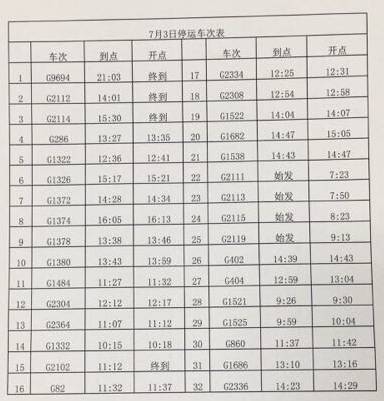 7月3日停运车次表
车次 到点 开点 车次 到点 开点
1 G9694 21:03 终到 17 G2334 12:25 12:31
2 G2112 14:01 终到 18 G2308 12:54 12:58
3 G2114 15:30 终到 19 G1522 14:04 14:07
4 G286 13:27 13:35 20 G1682 14:47 15:05
5 G1322 12:36 12:41 21 G1538 14:43 14:47
6 G1326 15:17 15:21 22 G2111 始发 7:23
7 G1372 14:28 14:34 23 G2113 始发 7:50
8 G1374 16:05 16:13 24 G2115 始发 8:23
9 G1378 13:38 13:46 25 G2119 始发 9:13
10 G1380 13:43 13:59 26 G402 14:39 14:43
11 G1484 11:27 11:32 27 G404 12:59 13:04
12 G2304 12:12 12:17 28 G1521 9:26 9:30
13 G2364 11:07 11:12 29 G1525 9:59 10:04
14 G1332 10:15 10:18 30 G860 11:37 11:42
15 G2102 11:12 终到 31 G1686 13:10 13:16
16 G82 11:32 11:37 32 G2336 14:23 14:29